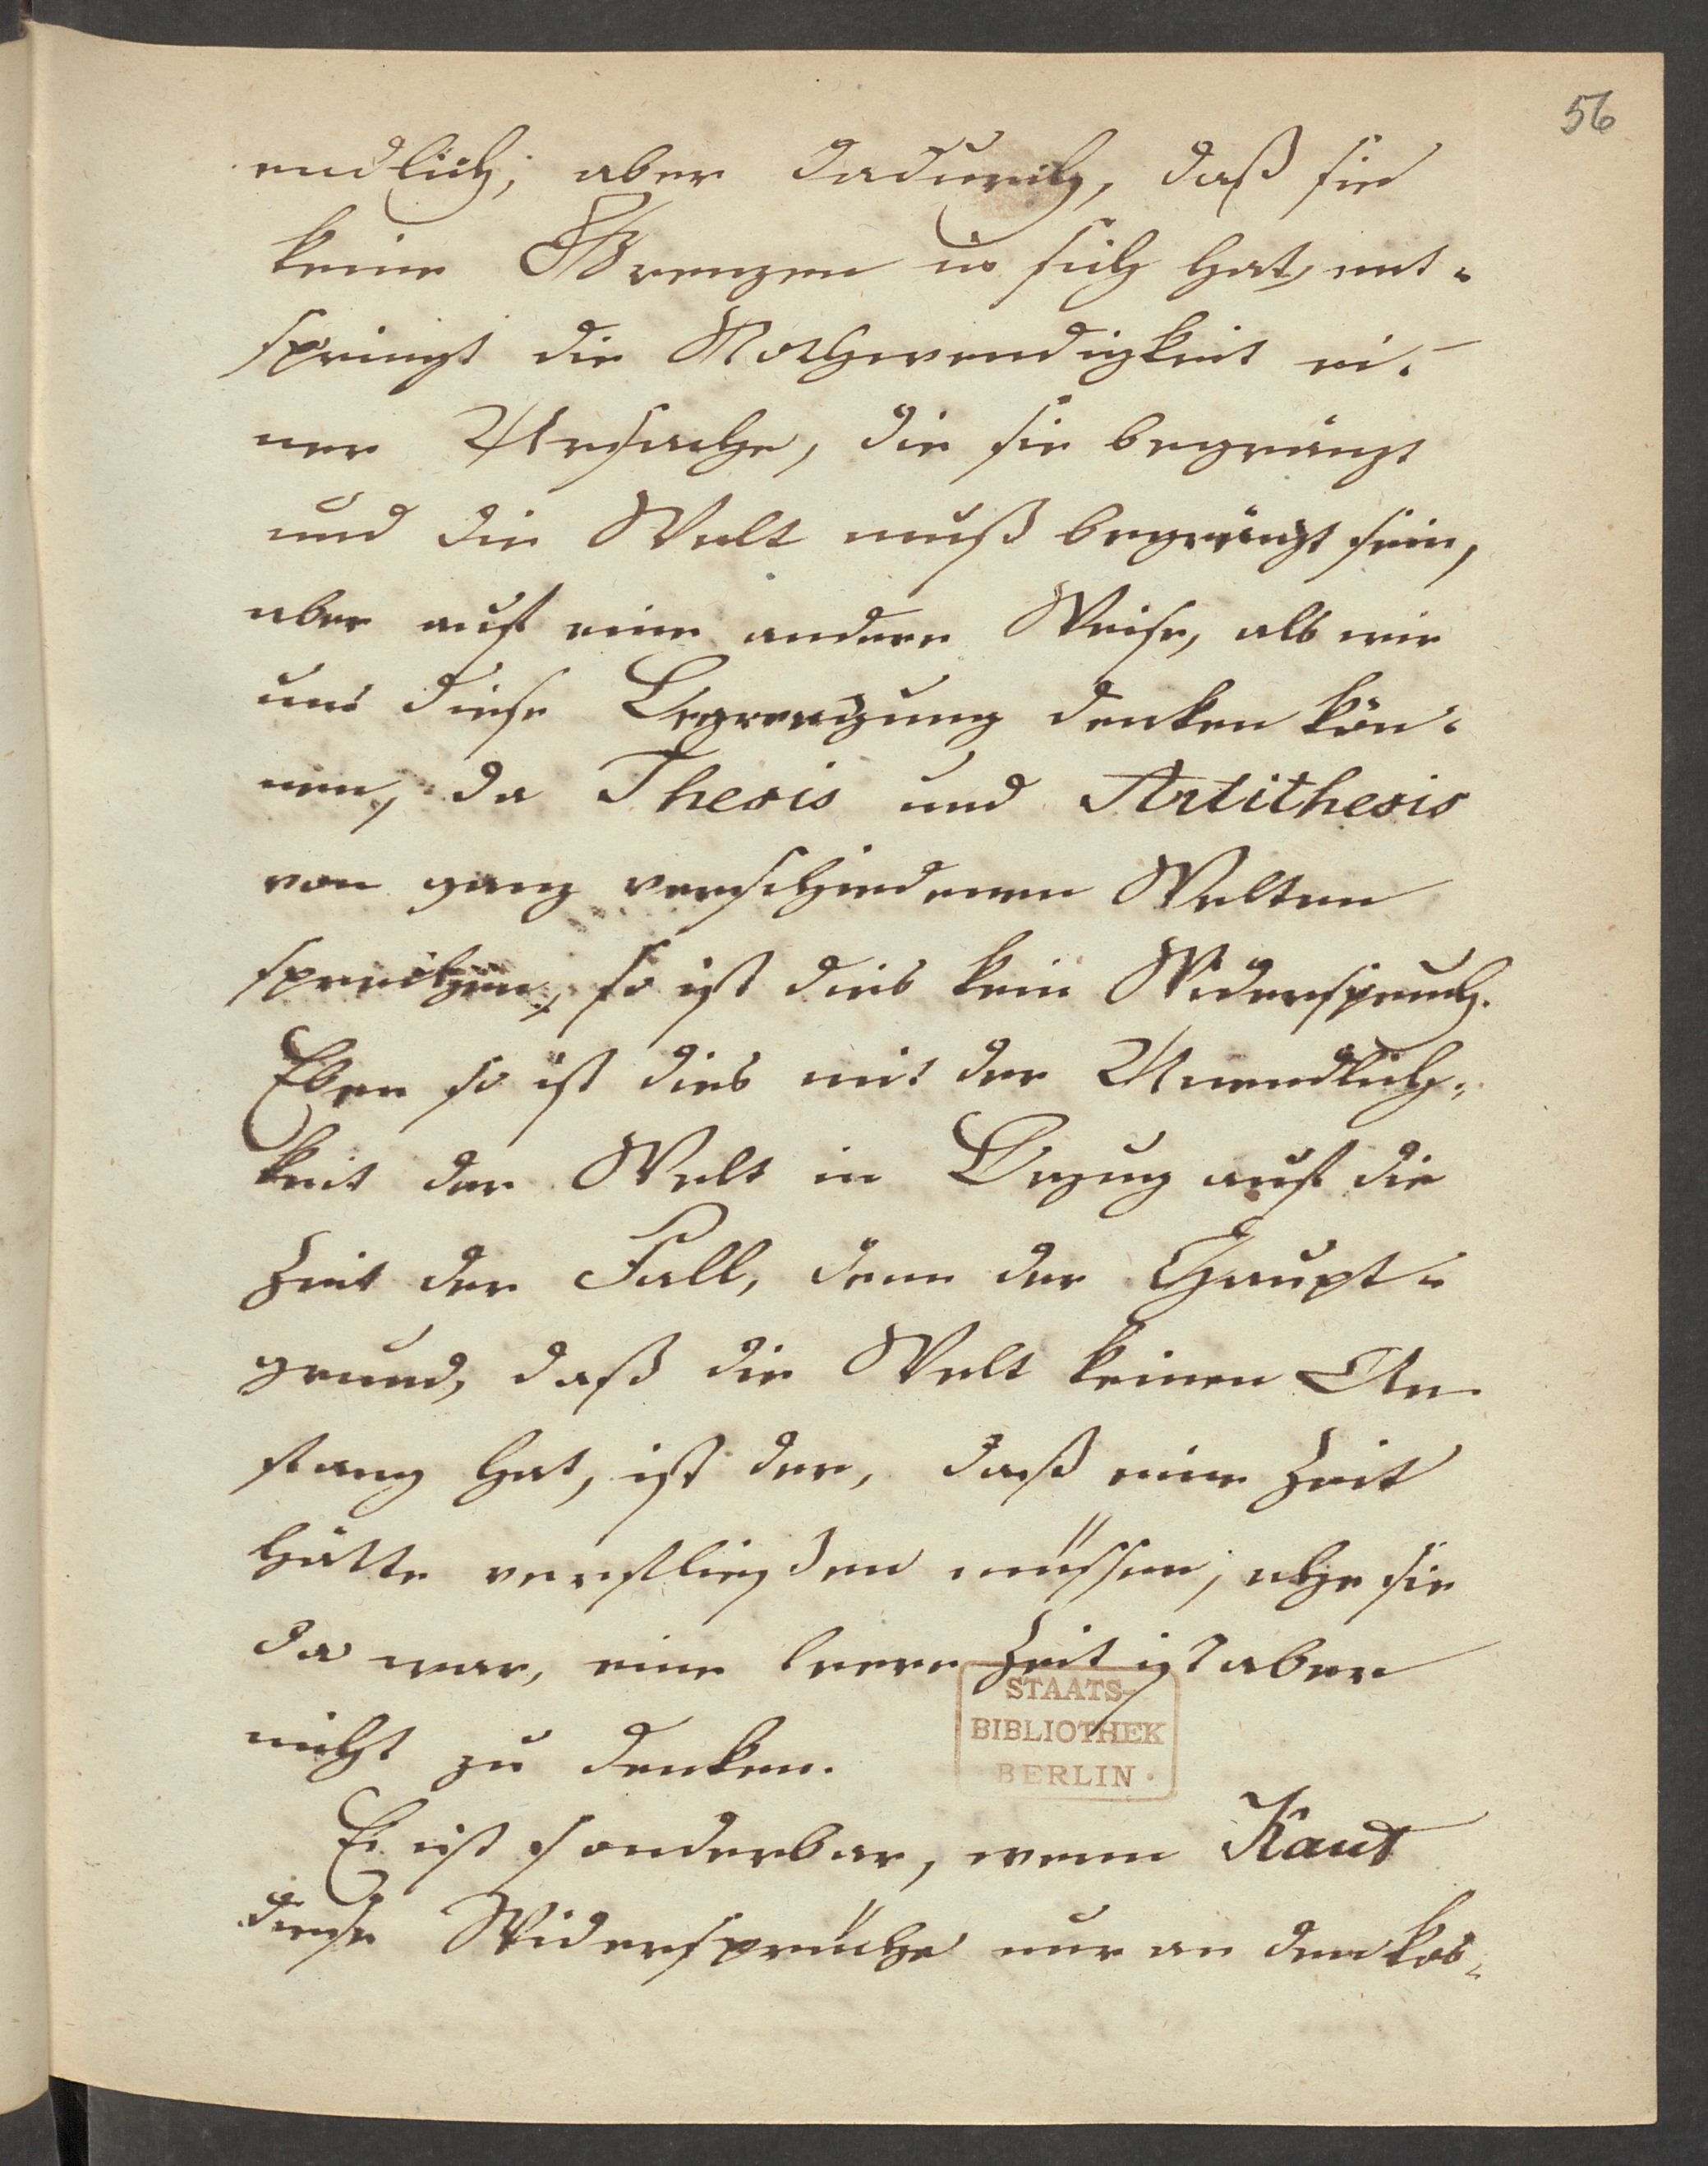 56
endlich; aber dadurch, daß sie
keine Grenzen in sich hat, ent-
springt die Nothwendigkeit ei-
ner Ursache, die sie begränzt
und die Welt muß begränzt sein,
aber auf eine andere Weise, als wir
uns diese Begrenzung denken kön-
nen, da Thesis und Antithesis
von ganz verschiedenen Welten
sprechen, so ist dies kein Widerspruch.
Eben so ist dies mit der Unendlich-
keit der Welt in Bezug auf die
Zeit der Fall, denn der Haupt-
grund, daß die Welt keinen An-
fang hat, ist der, daß eine Zeit
hätte verfließen müssen, ehe sie
da war, eine leere Zeit ist aber
nicht zu denken.
STAATS-
BIBLIOTHEK
BERLIN
Es ist sonderbar, wenn Kant
diese Widersprüche nur an den kos-